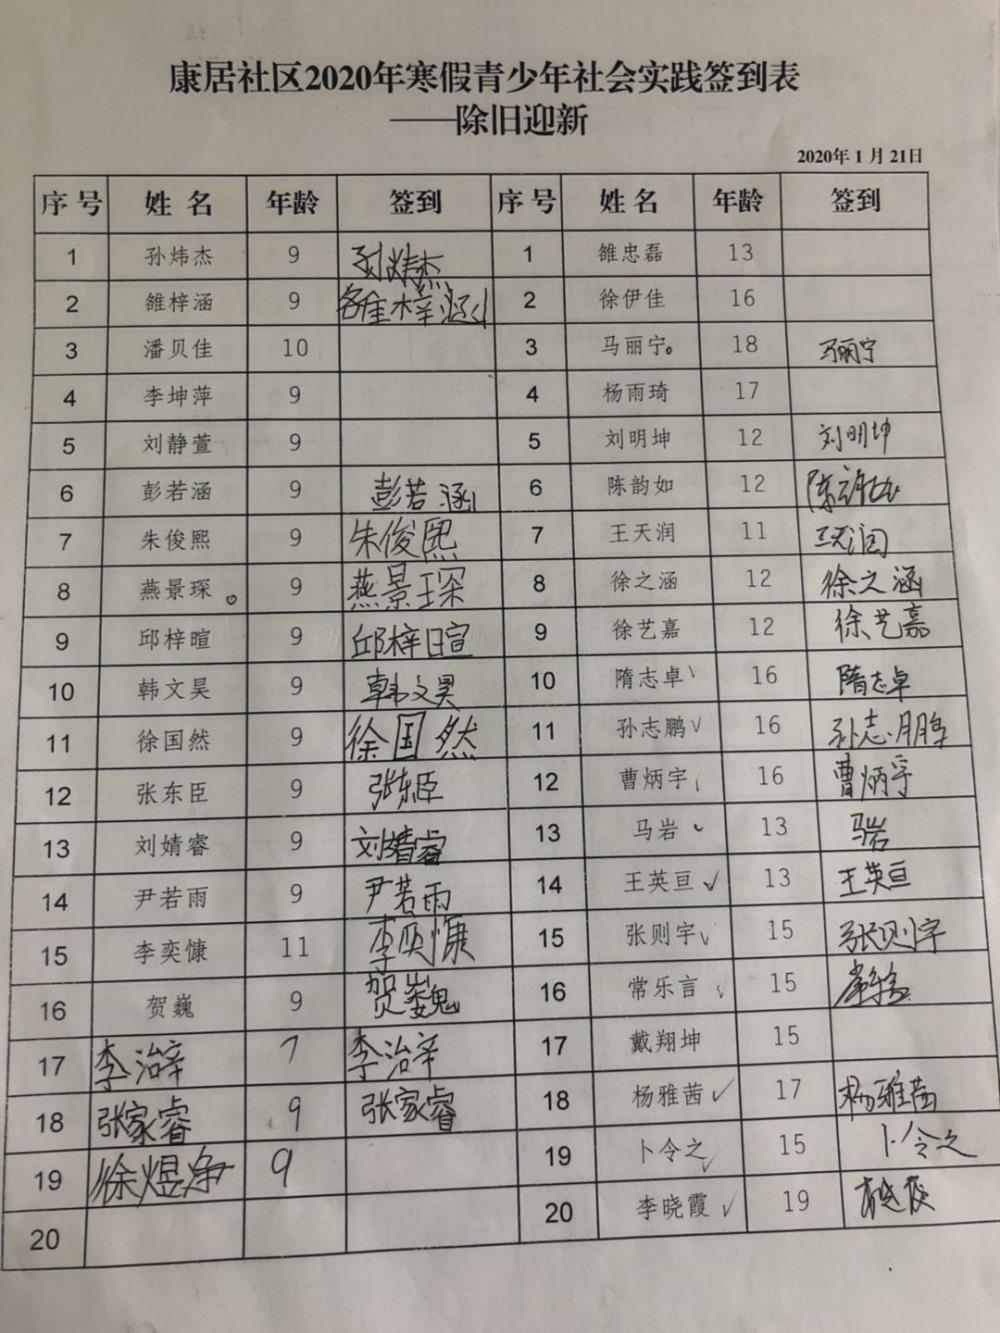 康居社区2020年寒假青少年社会实践签到表
——除旧迎新
2020年1月21日
序号 姓名 年龄 签到 序号 姓名 年龄 签到
1 孙炜杰 9 孙炜杰 1 雒忠磊 13
2 雒梓涵 9 雒梓涵 2 徐伊佳 16
3 潘贝佳 10 3 马丽宁 18 马丽宁
4 李坤萍 9 4 杨雨琦 17
5 刘静萱 9 5 刘明坤 12 刘明坤
6 彭若涵 9 彭若涵 6 陈韵如 12 陈韵如
7 朱俊熙 9 朱俊熙 7 王天润 11 王天润
8 燕景琛 9 燕景琛 8 徐之涵 12 徐之涵
9 邱梓暄 9 邱梓暄 9 徐艺嘉 12 徐艺嘉
10 韩文昊 9 韩文昊 10 隋志卓 16 隋志卓
11 徐国然 9 徐国然 11 孙志鹏 ✓ 16 孙志鹏
12 张东臣 9 张东臣 12 曹炳宇 16 曹炳宇
13 刘婧睿 9 刘婧睿 13 马岩 13 马岩
14 尹若雨 9 尹若雨 14 王英亘 ✓ 13 王英亘
15 李奕慷 11 李奕慷 15 张则宇 ✓ 15 张则宇
16 贺巍 9 贺巍 16 常乐言 ✓ 15 常乐言
17 李治辛 7 李治辛 17 戴翔坤 15
18 张家睿 9 张家睿 18 杨雅茜 ✓ 17 杨雅茜
19 徐煜净 9 19 卜令之 ✓ 15 卜令之
20 20 李晓霞 ✓ 19